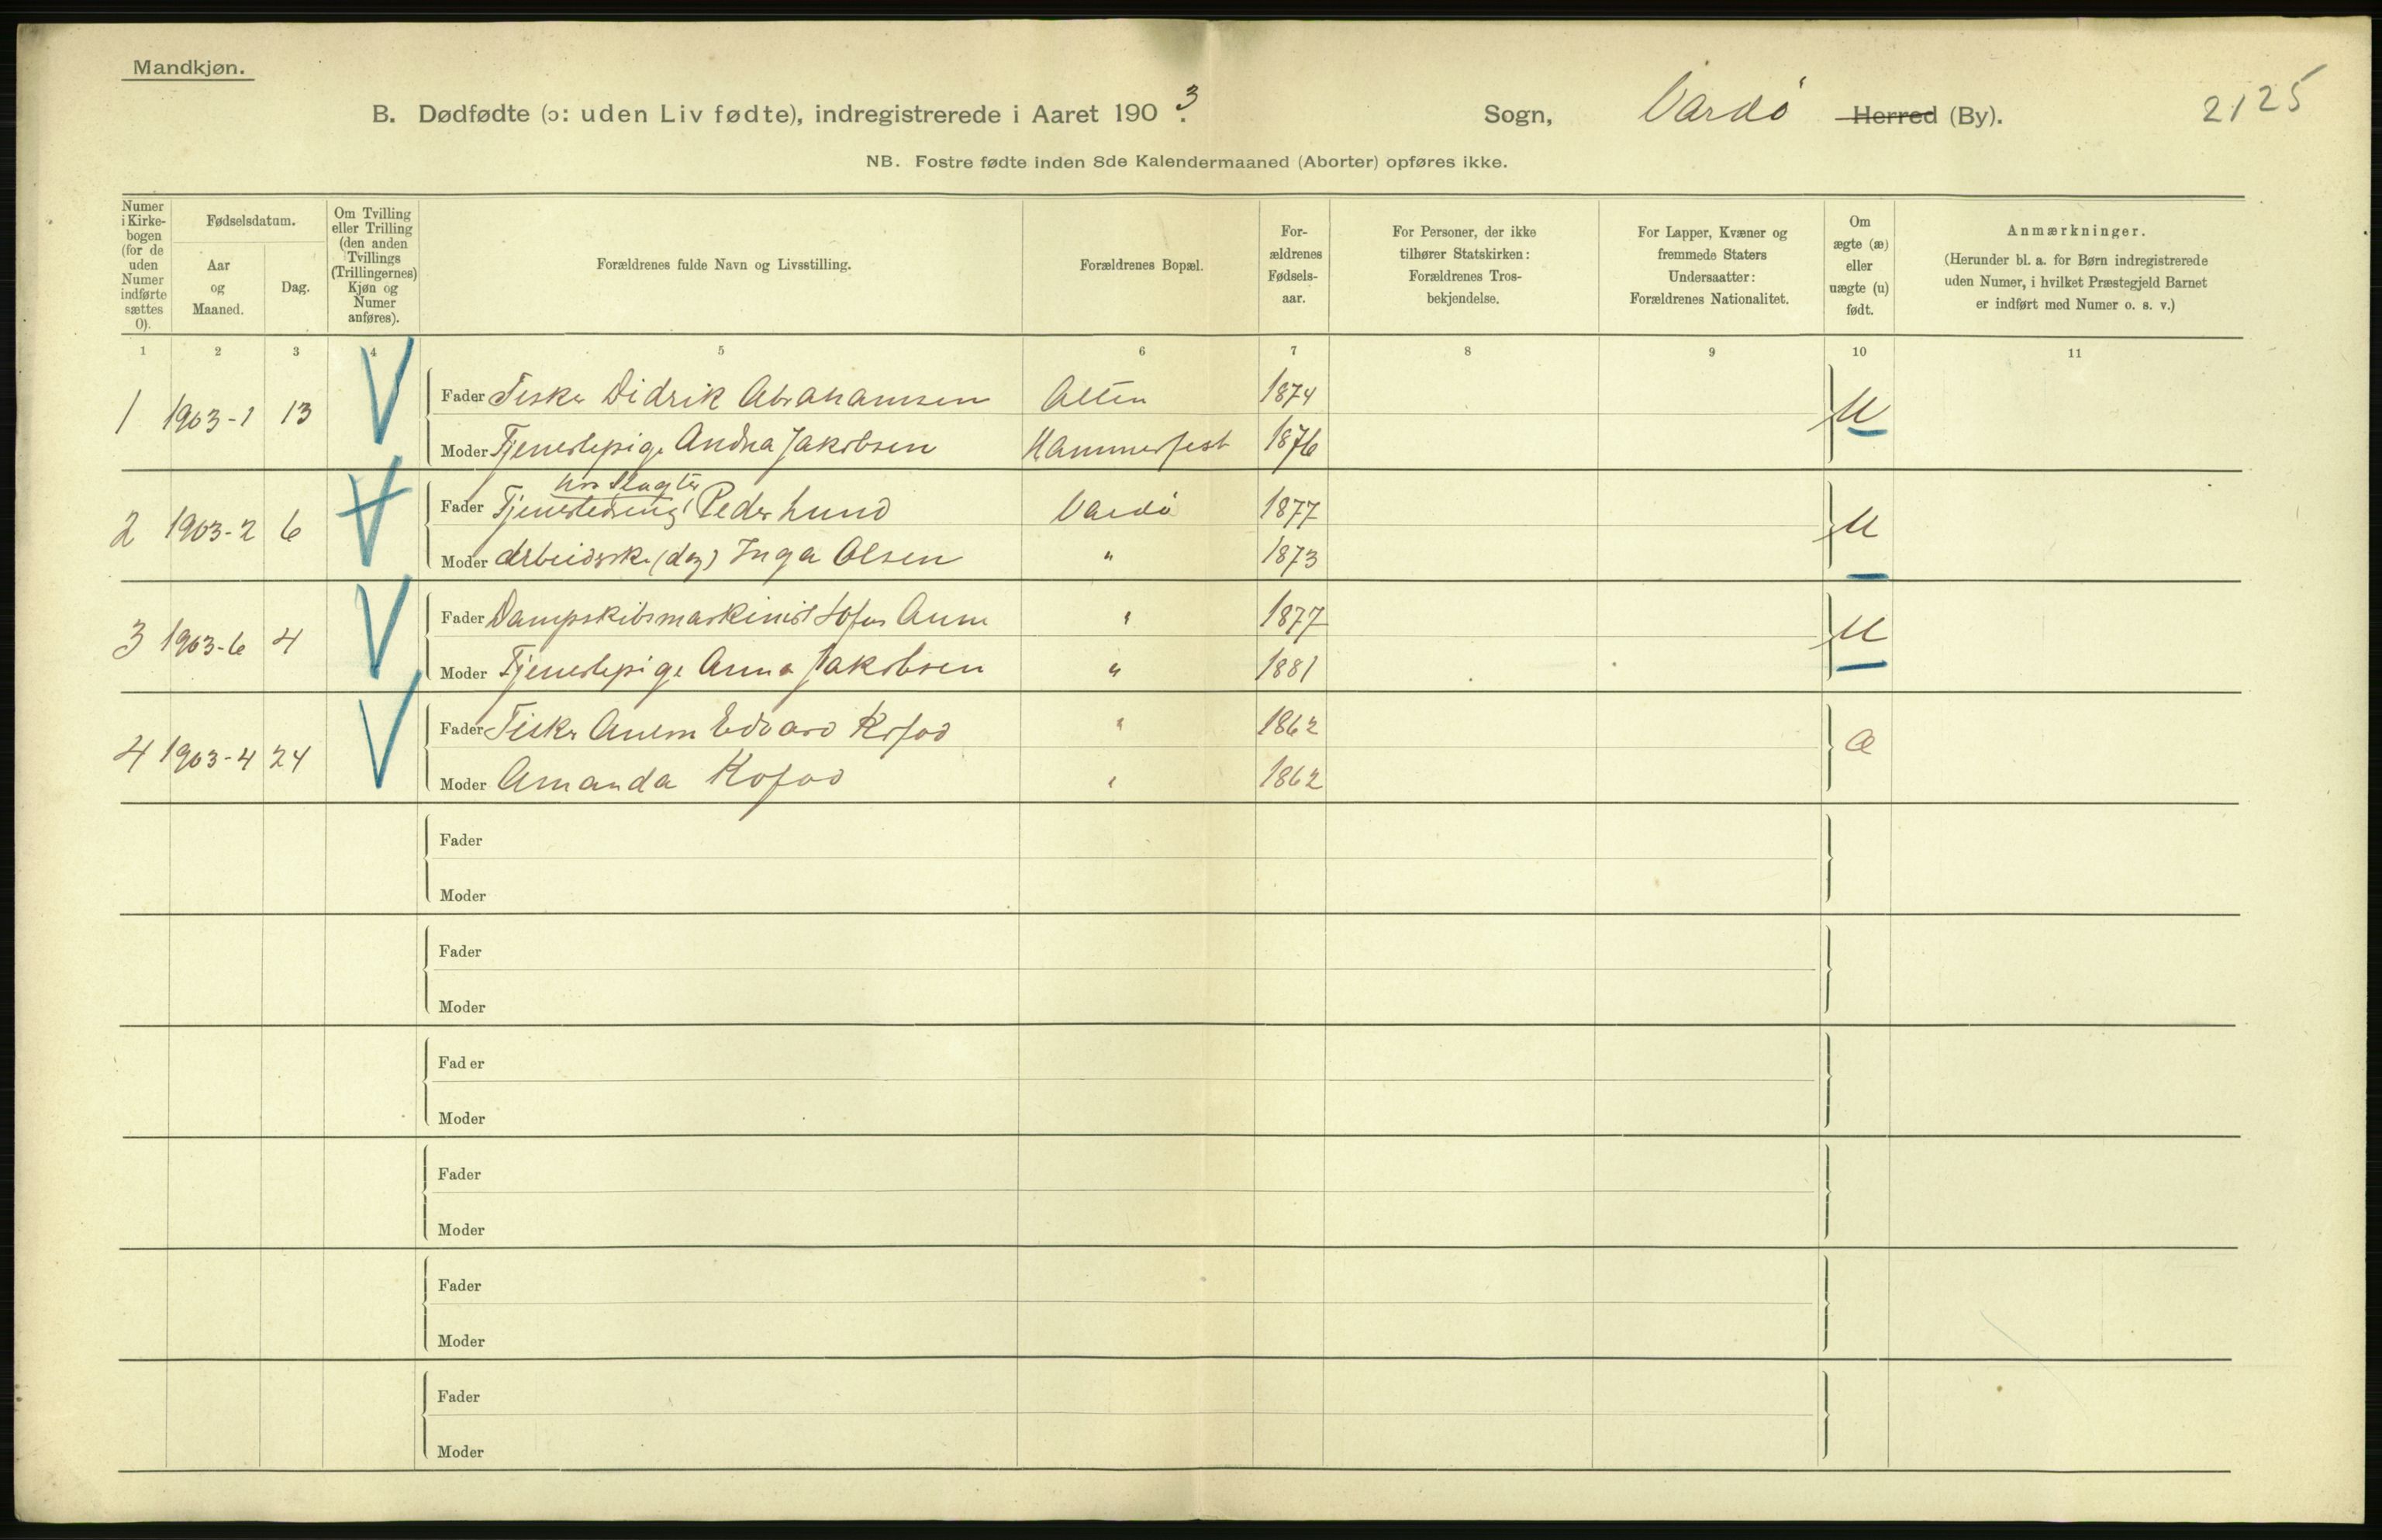 Mandkjøn.
B. Dødfødte (ɔ: uden Liv fødte), indregistrerede i Aaret 1903. Sogn, Vardø Herred (By). 2125
NB. Fostre fødte inden 8de Kalendermaaned (Aborter) opføres ikke.
Numer i Kirkebogen (for de uden Numer indførte sættes 0).
Fødselsdatum.
Aar og Maaned.
Dag.
Om Tvilling eller Trilling (den anden Tvillings (Trillingernes) Kjøn og Numer anføres).
Forældrenes fulde Navn og Livsstilling.
Forældrenes Bopæl.
Forældrenes Fødselsaar.
For Personer, der ikke tilhører Statskirken: Forældrenes Trosbekjendelse.
For Lapper, Kvæner og fremmede Staters Undersaatter: Forældrenes Nationalitet.
Om ægte (æ) eller uægte (u) født.
Anmærkninger. (Herunder bl. a. for Børn indregistrerede uden Numer, i hvilket Præstegjeld Barnet er indført med Numer o. s. v.)
1 2 3 4 5 6 7 8 9 10 11
1 1903-1 13 Fader Fisker Didrik Abrahamsen Alten 1874 U
Moder Tjenestepige Andrea Jakobsen Hammerfest 1876
hos Slagter
2 1903-2 6 Fader Tjenestedreng Peder Lund Vardø 1877 U
Moder Arbeiderske (dag) Inga Olsen " 1873
3 1903-6 4 Fader Dampskibsmaskinist Sofus Aune " 1877 U
Moder Tjenestepige Anna Jakobsen " 1881
4 1903-4 24 Fader Fisker Edvard Kofod " 1862 Æ
Moder Amanda Kofod " 1862
Fader
Moder
Fader
Moder
Fader
Moder
Fader
Moder
Fader
Moder
Fader
Moder